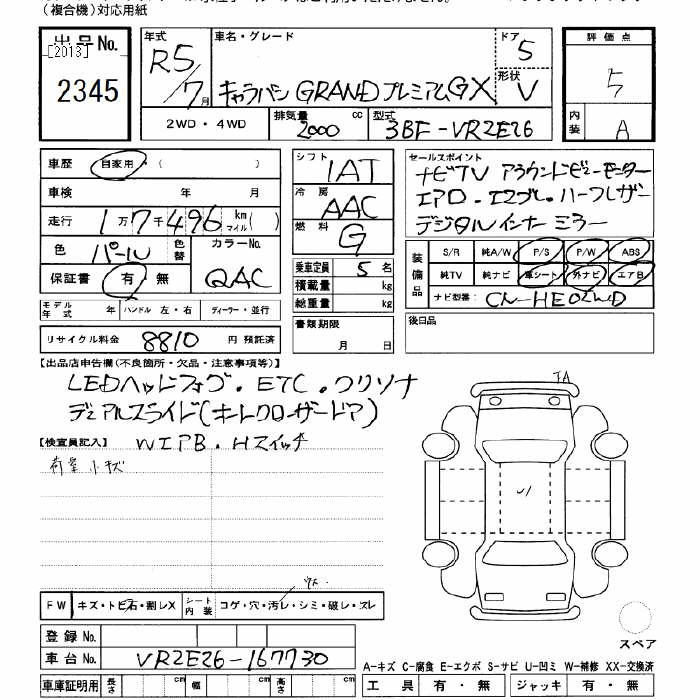 (複合機)対応用紙
出品No.
[2013]
2345
年式
R5/7月
車名・グレード
キャラバン GRANDプレミアムGX
ドア
5
形状
V
評価点
5
内装
A
2WD・4WD
排気量 2000 cc
型式 3BF-VR2E26
車歴 自家用・( )
車検 年 月
走行 1万7千496km マイル( )
色 パール 色替 カラーNo. QAC
保証書 有・無
モデル年式 年 ハンドル 左・右 ディーラー・並行
リサイクル料金 8810 円 預託済
シフト IAT
冷房 AAC
燃料 G
乗車定員 5 名
積載量 kg
総重量 kg
書類期限 月 日
セールスポイント
ナビTV アラウンドビューモニター
エアロ.エマブレ.ハーフレザー
デジタルインナーミラー
装備品
S/R 純A/W P/S P/W ABS
純TV 純ナビ 革シート 外ナビ エアB
ナビ型番 CN-HE02WD
後日品
【出品店申告欄(不良箇所・欠品・注意事項等)】
LEDヘッドフォグ.ETC.クリソナ
デュアルスライド(キーレクローザードア)
WエアB.Hスイッチ
【検査員記入】
荷室小キズ
FW キズ・トビ石・割レX シート内装 コゲ・穴・汚レ・シミ・破レ・スレ
登録No.
車台No. VR2E26-167730
車庫証明用 長さ cm 幅 cm 高さ cm
スペア
A-キズ C-腐食 E-エクボ S-サビ U-凹ミ W-補修 XX-交換済
工具 有・無 ジャッキ 有・無